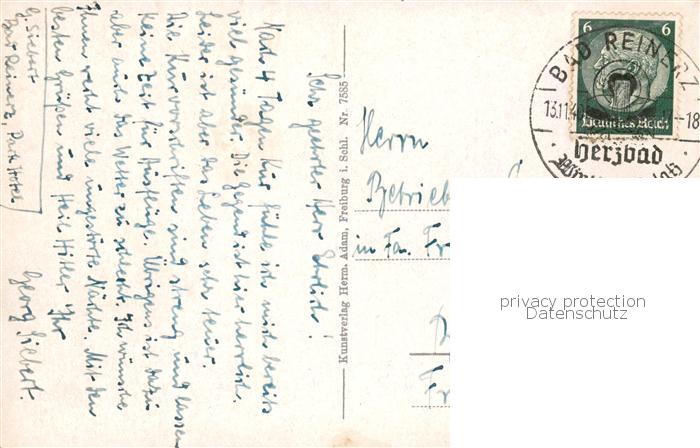 Sehr geehrter Herr Streich!
Nach 4 Tagen Kur fühle ich mich bereits
viel gesünder. Die Gegend ist hier herrlich.
Leider ist aber das Leben sehr teuer.
Die Kurvorschriften sind streng und lassen
keine Zeit für Ausflüge. Übrigens ist dazu
aber auch das Wetter zu schlecht. Ich wünsche
Ihnen recht viele ungestörte Nächte. Mit den
besten Grüßen und Heil Hitler Ihr
Georg Siebert.
G. Siebert
Bad Reinerz, Park Hotel
Kunstverlag Herm. Adam, Freiburg i. Schl. Nr. 7585
6 6
Deutsches Reich
BAD REINERZ
13.11.4
-18
Herzbad
Herrn
Betrieb
in Fa. Fr
privacy protection
Datenschutz